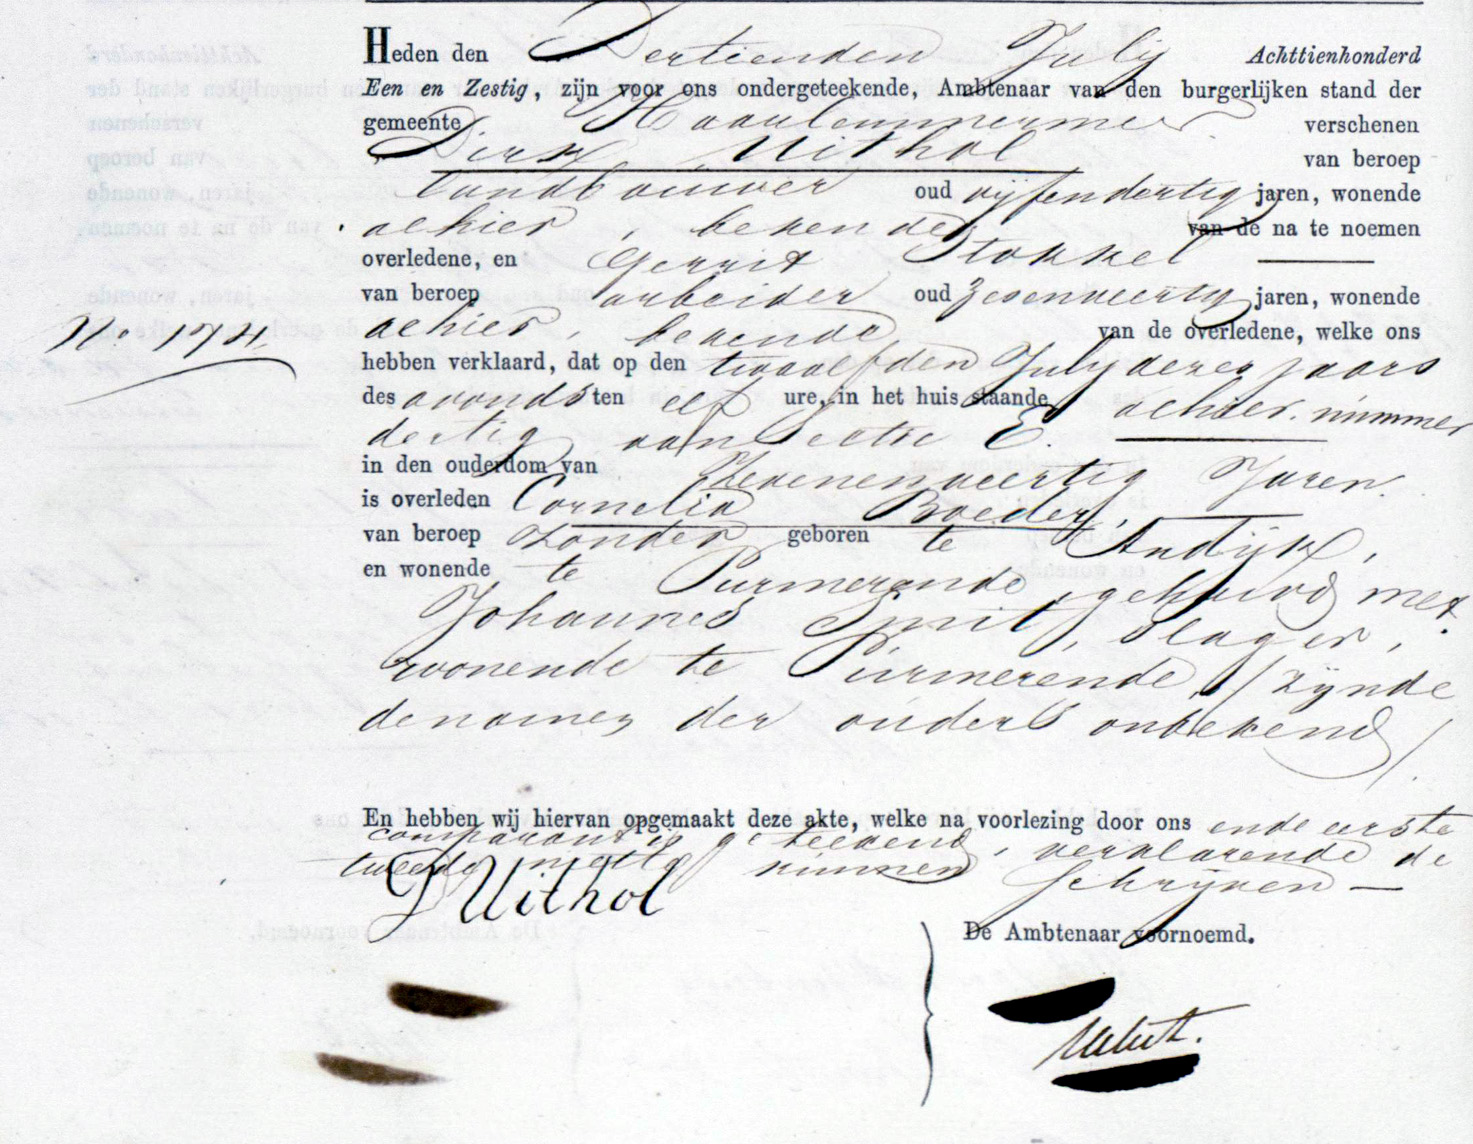 Heden den Dertienden Julij Achttienhonderd
Een en Zestig, zijn voor ons ondergeteekende, Ambtenaar van den burgerlijken stand der
gemeente Haarlemmermeer verschenen
Dirk Uithol van beroep
landbouwer oud vijfendertig jaren, wonende
alhier, bekende van de na te noemen
overledene, en Gerrit Stokkel
van beroep arbeider oud zesenveertig jaren, wonende
alhier, bekende van de overledene, welke ons
No. 174
hebben verklaard, dat op den twaalfden Julij dezes jaars
des avonds ten elf ure, in het huis staande alhier nummer
dertig van Sectie E
in den ouderdom van Zevenenveertig Jaren
is overleden Cornelia Broeder,
van beroep zonder geboren te Andijk,
en wonende te Purmerende, gehuwd met
Johannes Smit, slager,
wonende te Purmerende, /zijnde
de namen der ouders onbekend/.
En hebben wij hiervan opgemaakt deze akte, welke na voorlezing door ons en de eerste
comparant is geteekend, verklarende de
tweede niet te kunnen schrijven —
D Uithol
De Ambtenaar voornoemd.